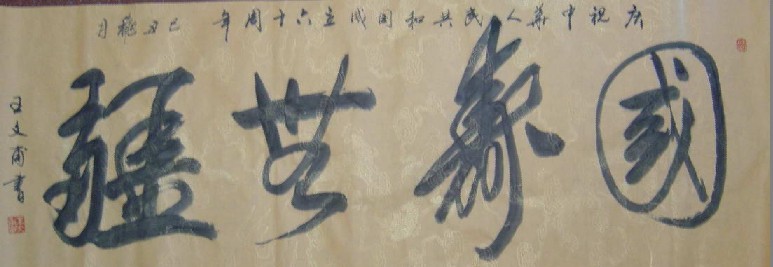 庆祝中华人民共和国成立六十周年 己丑秋月
國寿無疆
王文甫书